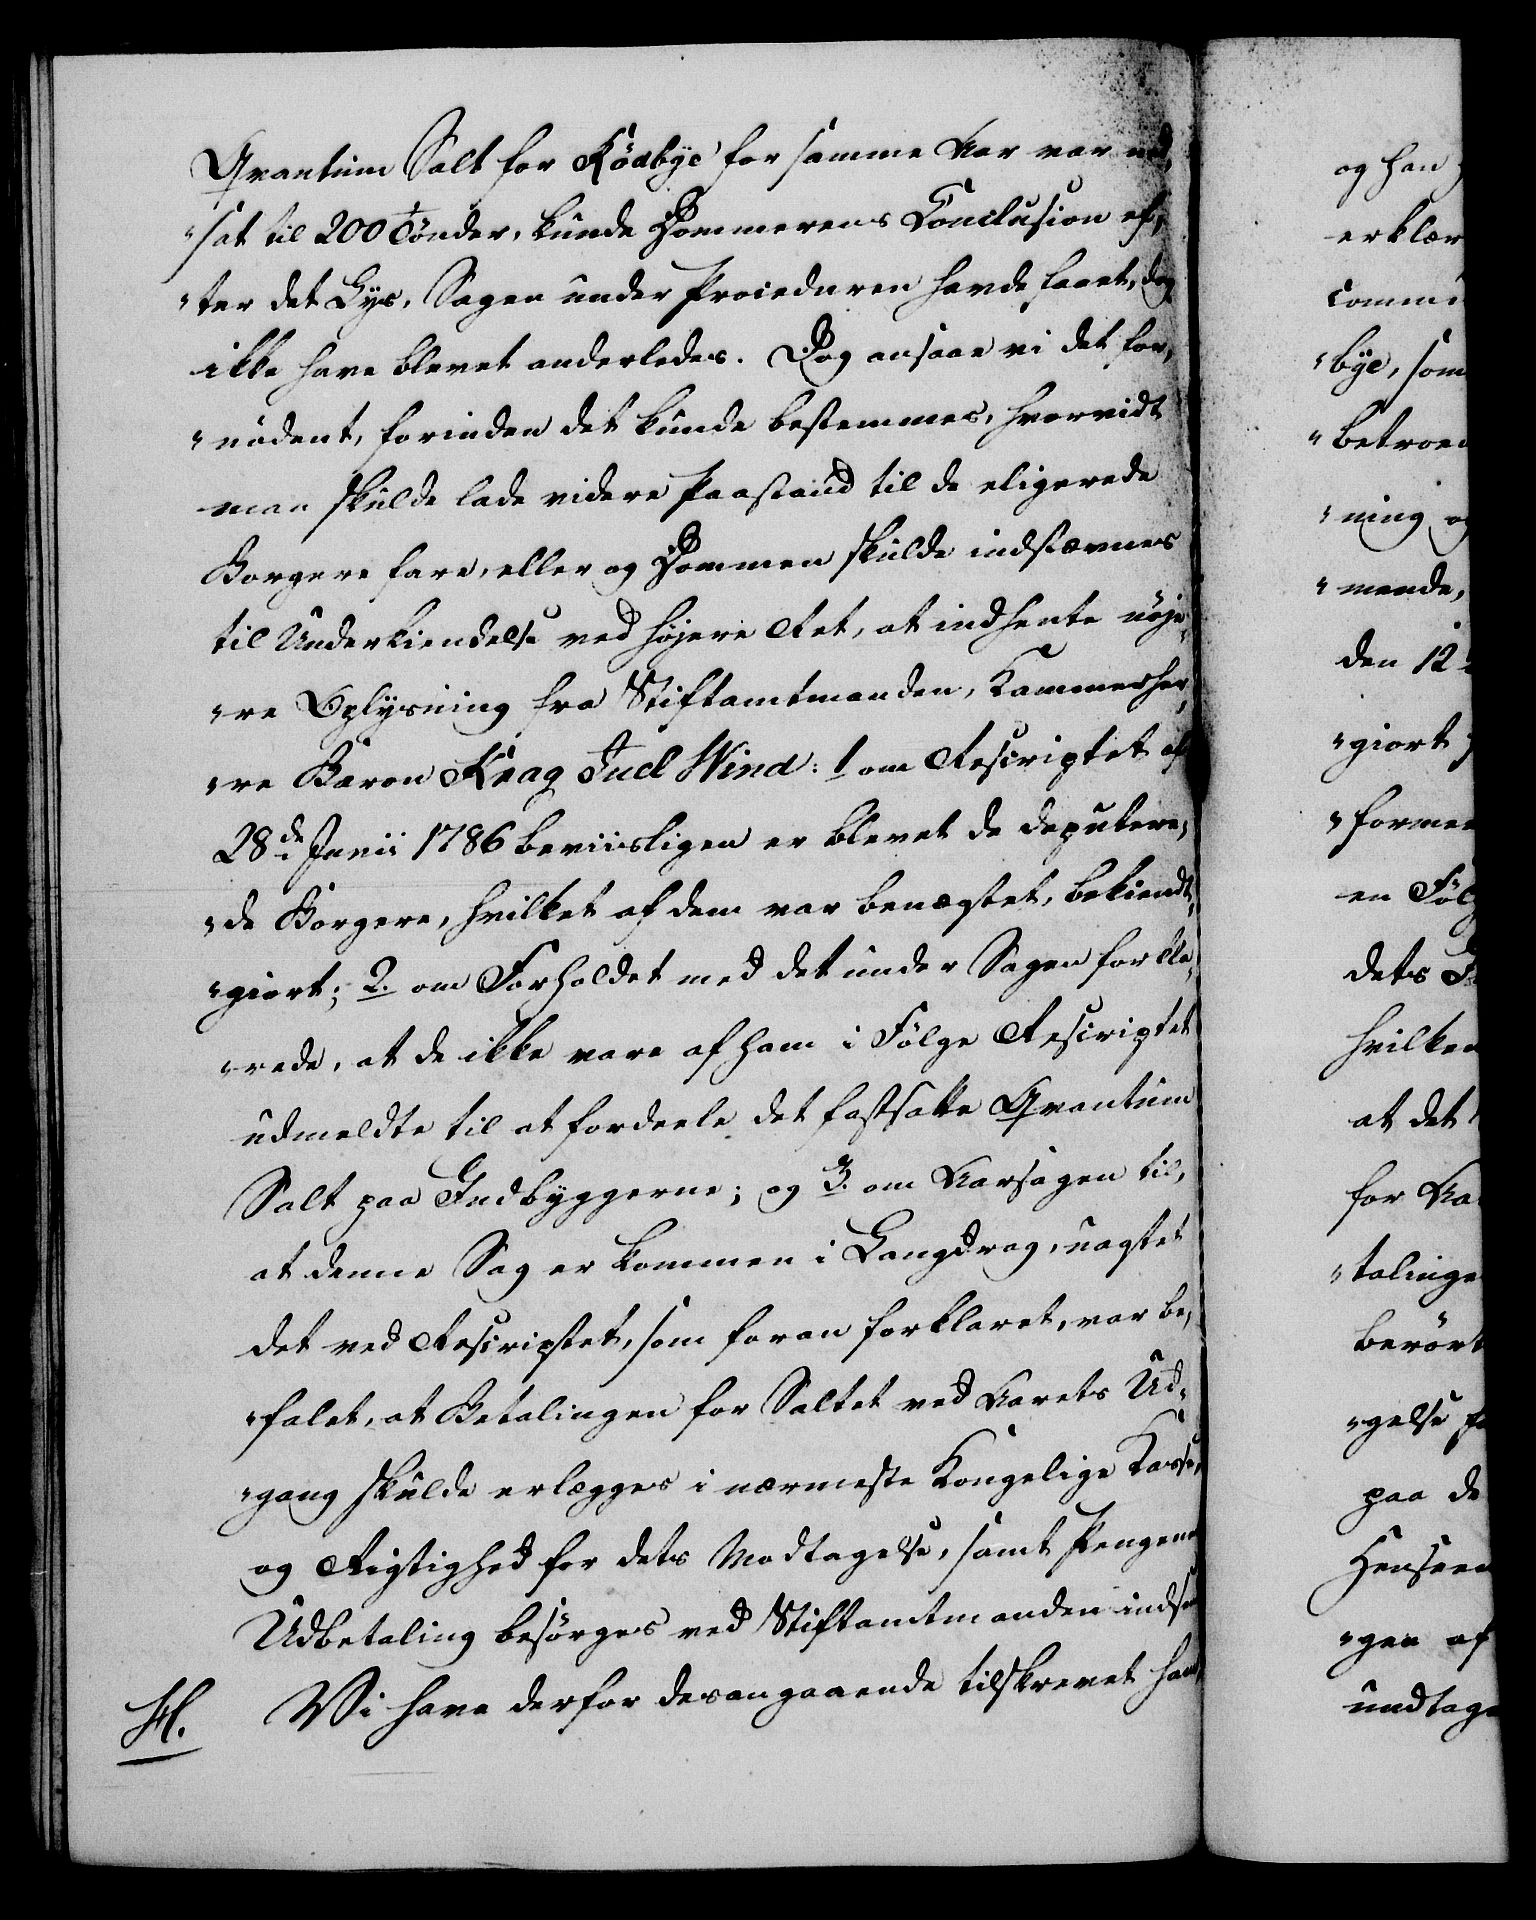 Qvantum Salt for Rödbye for samme Aar var ned,
"sat til 200 Tönder, kunde Dommerens Conclusion ef,
"ter det Lys, Sagen under Proceduren havde faaet, dog
ikke have blevet anderledes. Dog ansaae vi det for,
"nödent, forinden det kunde bestemmes, hvorvidt
man skulde lade videre Paastand til de eligerede
Borgere fare, eller og Dommen skulde indstævnes
til Underkiendelse ved höjere Ret, at indhente nöje,
"re Oplysning fra Stiftamtmanden, Kammerher,
"re Baron Krag Juel Wind: 1 om Rescriptet af
28de Junii 1786 beviisligen er blevet de deputere,
"de Borgere, hvilket af dem var benægtet, bekiendt,
"giort; 2. om Forholdet med det under Sagen forkla,
"rede, at de ikke vare af ham i Fölge Rescriptet
udmeldte til at fordeele det fastsatte Qvantum
Salt paa Indbyggerne; og 3. om Aarsagen til,
at denne Sag er kommen i Langdrag, uagtet
det ved Rescriptet, som foran forklaret, var be,
"falet, at Betalingen for Saltet ved Aarets Ud,
"gang skulde erlægges i nærmeste Kongelige Kasse,
og Rigtighed for dets Modtagelse, samt Pengenes
Udbetaling besörges ved Stiftamtmanden
H. Vi have derfor desangaaende tilskrevet ham,
og han
erklær
commu
"bye, som
"betroe
"ning og
"mende,
den 12
"giort
"formee
en Fölg
dets
hvilken
at det
for Aa
"talinge
berört
"gelse
paa de
Henseen
"gen af
undtage